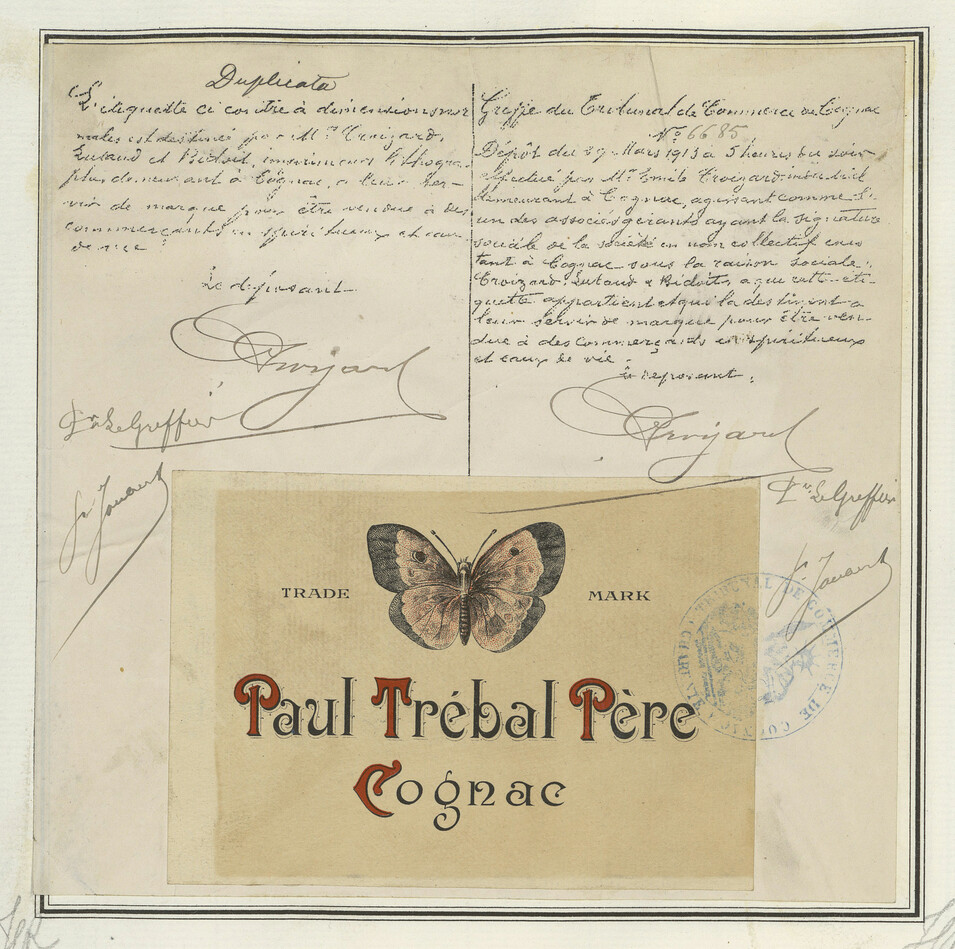 Duplicata
L'étiquette ci contre à dimensions nor
males est destinée par M.rs Croizard,
Lutaud et Bidoit, imprimeurs lithogra-
phes demeurant à Cognac, à leur ser-
vir de marque pour être vendue à des
commerçants en spiritueux et eau
de vie
Le déposant
Croizard
Pr. Le Greffier
Greffe du Tribunal de Commerce de Cognac
No 6685
Dépôt du 29 Mars 1913 à 5 heures du soir
effectué par Mr Emile Croizard industriel
demeurant à Cognac, agissant comme l'
un des associés gérants ayant la signature
sociale de la société en nom collectif exis
tant à Cognac sous la raison sociale:
Croizard, Lutaud & Bidoit, à qui cette éti-
quette appartient et qui la destinent à
leur servir de marque pour être ven-
due à des commerçants en spiritueux
et eaux de vie.
Le déposant:
Croizard
Pr. Le Greffier
TRADE MARK
Paul Trébal Père
Cognac
TRIBUNAL DE COMMERCE DE COGNAC